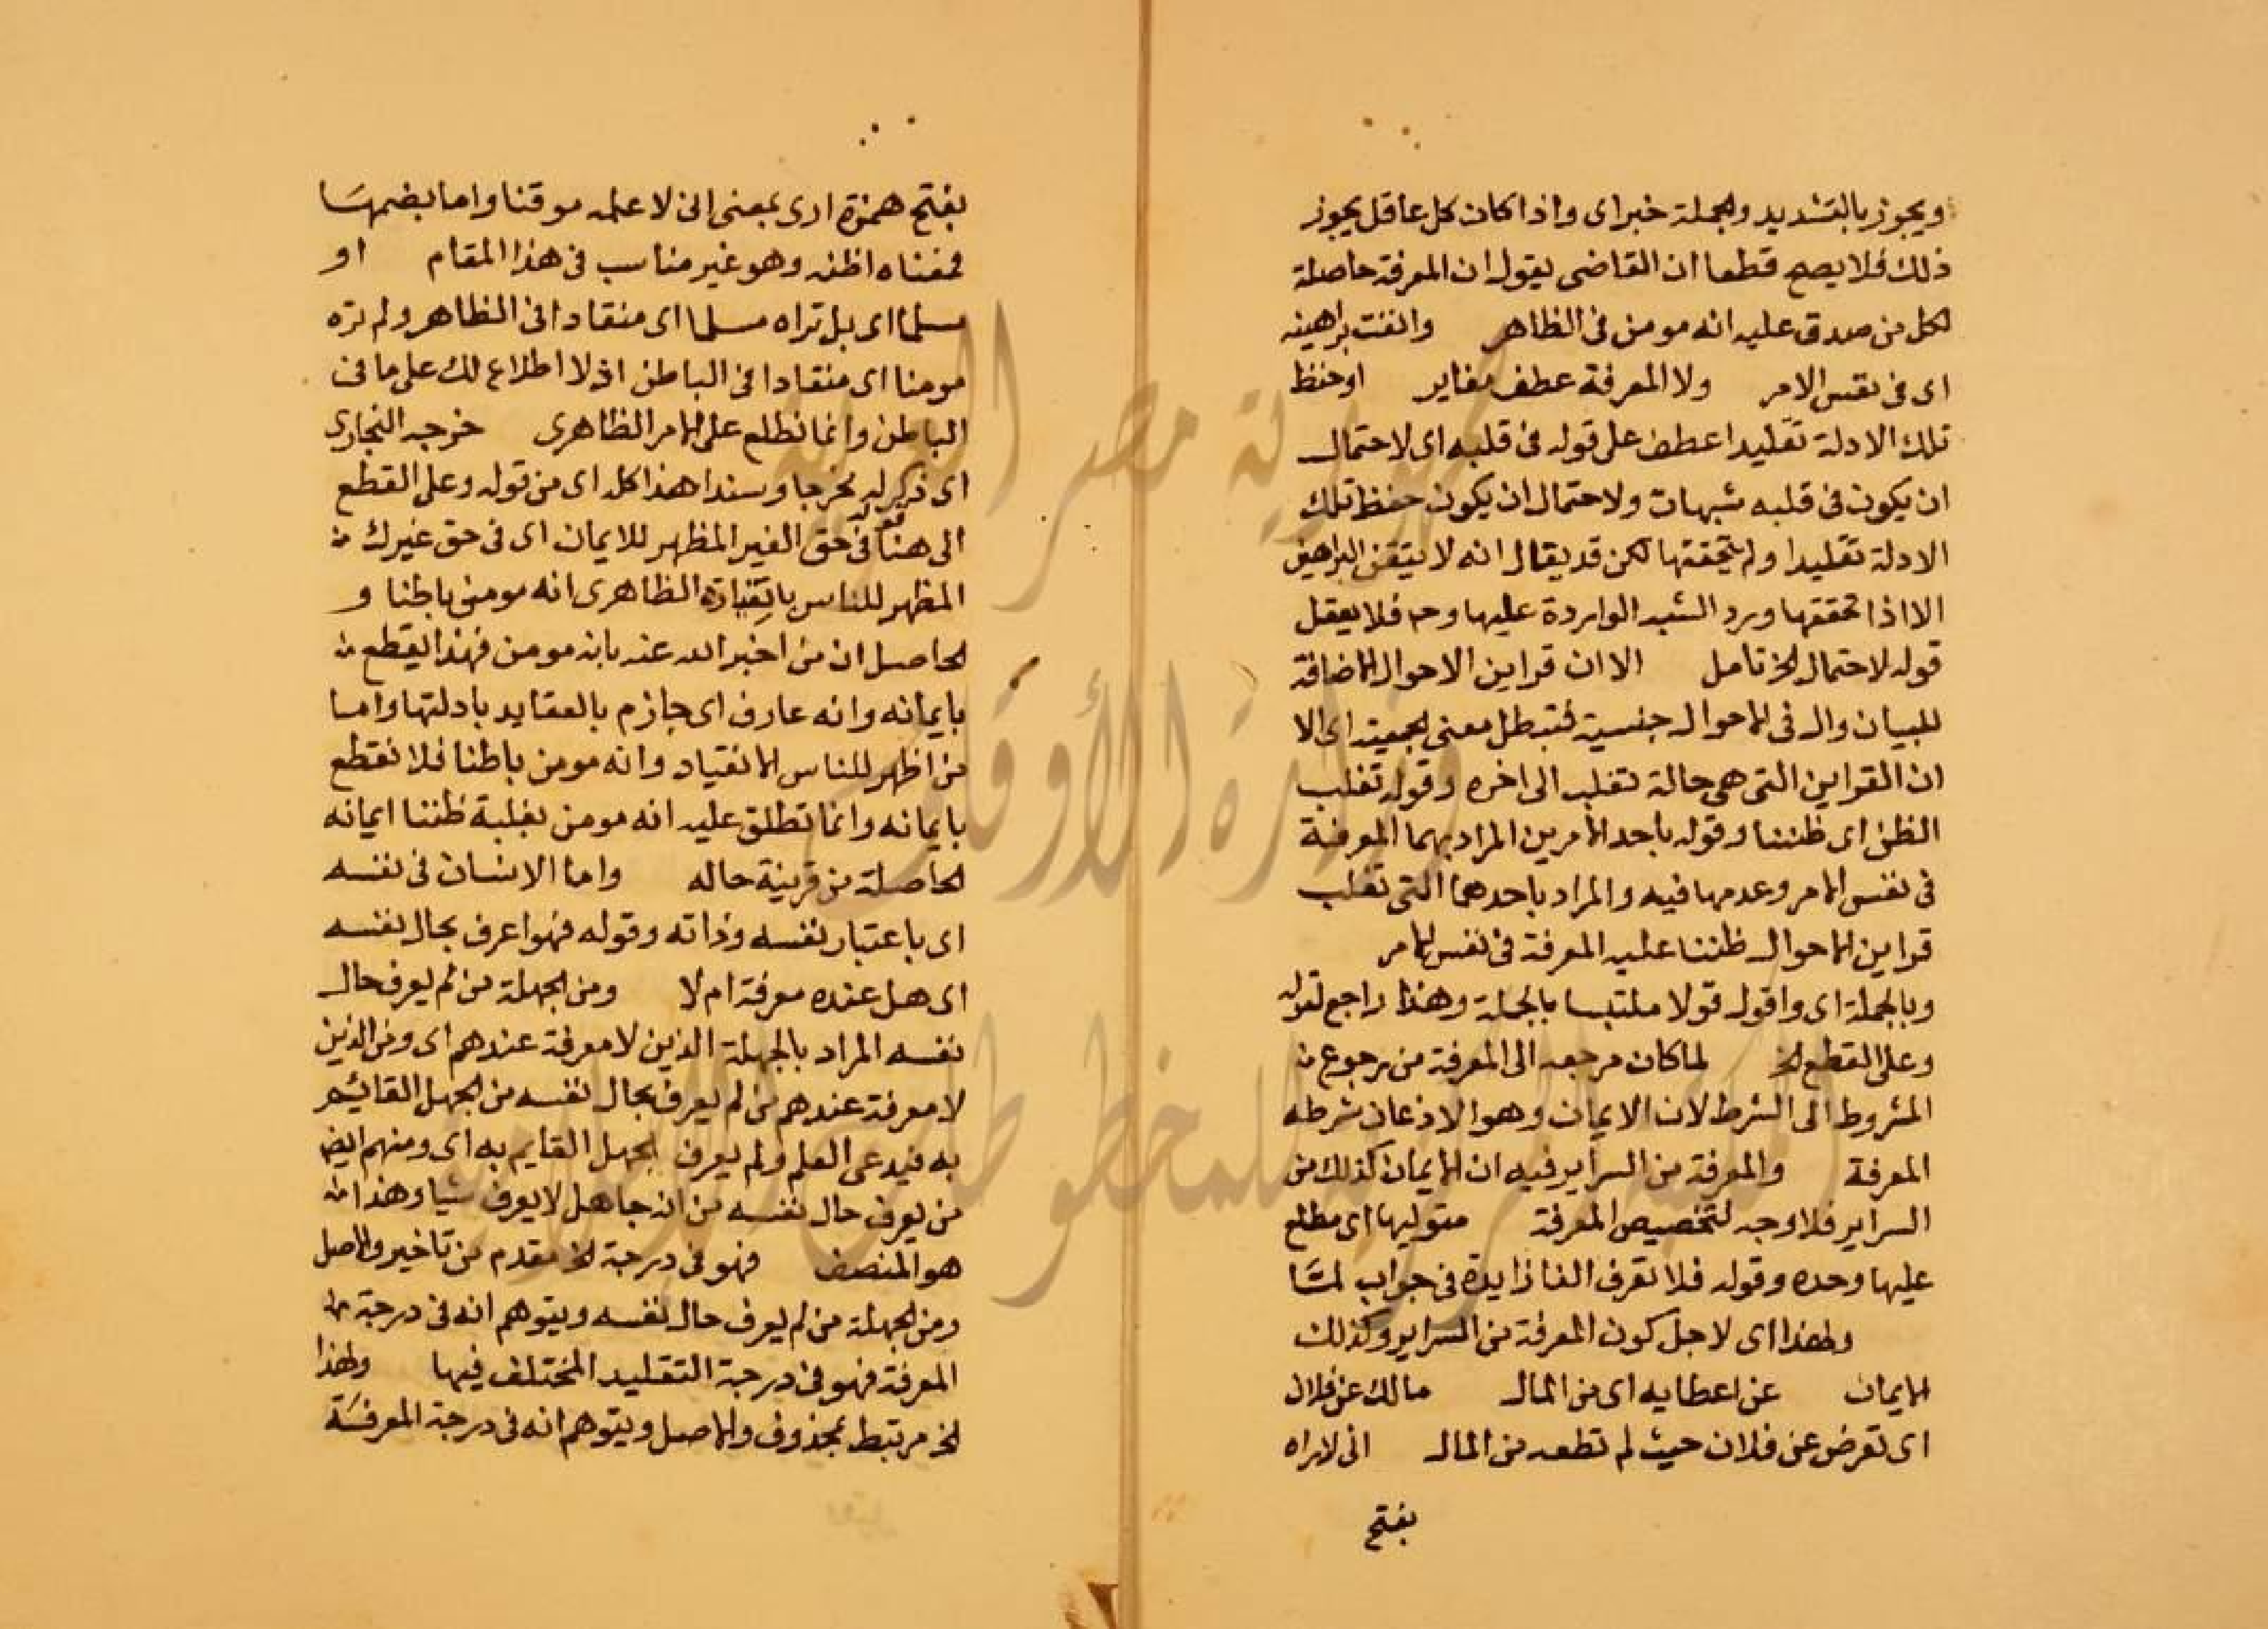 ويجوز بالتشديد والجملة خبر اى واذا كان كل عاقل يجوز
ذلك فلا يصح قطعا ان القاضى يقول ان المعرفة حاصلة
لكل من صدق عليه انه مومن فى الظاهر واتقنت براهينه
اى فى نفس الامر ولا المعرفة عطف مغاير او حفظ
تلك الادلة تقليدا عطف على قوله فى قلبه اى لاحتمال
ان يكون فى قلبه شبهات ولاحتمال ان يكون حفظ تلك
الادلة تقليدا ولم يتحققها لكن قد يقال انه لا يتيقن البراهين
الا اذا تحققها ورد الشبه الواردة عليها وح فلا يعقل
قوله لاحتمال الخ تامل الا ان قراين الاحوال الاضافة
للبيان وال فى الاحوال جنسية فتبطل معنى الجمعية اى الا
ان القراين التى هى حالة تغلب الى اخره وقوله تغلب
الظن اى ظننا وقوله باحد الامرين المراد بهما المعرفة
فى نفس الامر وعدمها فيه والمراد باحدهما التى تغلب
قراين الاحوال ظننا عليه المعرفة فى نفس الامر
وبالجملة اى واقول قولا ملتبسا بالجملة وهذا راجع لقوله
وعلى القطع الخ لما كان مرجعه الى المعرفة من رجوع
المشروط الى الشرط لان الايمان وهو الاذعان شرطه
المعرفة والمعرفة من السراير فيه ان الايمان كذلك من
السراير فلا وجه لتخصيص المعرفة متوليها اى مطلع
عليها وحده وقوله فلا تعرف الفا زايدة فى جواب لما
ولهذا اى لاجل كون المعرفة من السراير وكذلك
الايمان عن اعطايه اى من المال مالك عن فلان
اى تعرض عن فلان حيث لم تطعه من المال انى لاراه
بفتح
بفتح همزة ارى بمعنى انى لاعلمه موقنا واما بضمها
فمعناه اظنه وهو غير مناسب فى هذا المقام او
مسلما اى بل تراه مسلما اى منقادا فى الظاهر ولم تره
مومنا اى منقادا فى الباطن اذ لا اطلاع لك على ما فى
الباطن وانما نطلع على الامر الظاهرى خرجه البخارى
اى ذكر له مخرجا وسندا هذا كله اى من قوله وعلى القطع
الى هنا قوله فى حق الغير المظهر للايمان اى فى حق غيرك
المظهر للناس بانقياده الظاهرى انه مومن باطنا و
الحاصل ان من اخبر الله عنه بانه مومن فهذا يقطع
بايمانه وانه عارف اى جازم بالعقايد بادلتها واما
من اظهر للناس الانقياد وانه مومن باطنا فلا نقطع
بايمانه وانما نطلق عليه انه مومن بغلبة ظننا ايمانه
الحاصلة من قرينة حاله واما الانسان فى نفسه
اى باعتبار نفسه وذاته وقوله فهو اعرف بحال نفسه
اى هل عنده معرفة ام لا ومن الجهلة من لم يعرف حال
نفسه المراد بالجهلة الذين لا معرفة عندهم اى ومن الذين
لا معرفة عندهم من لم يعرف بحال نفسه من الجهل القائم
به فيدعى العلم ولم يعرف الجهل القايم به اى ومنهم ايضا
من يعرف حال نفسه من انه جاهل لا يعرف شيا وهذا
هو المنصف فهو فى درجة الخ مقدم من تاخير والاصل
ومن الجهلة من لم يعرف حال نفسه ويتوهم انه فى درجة
المعرفة فهو فى درجة التقليد المختلف فيها ولهذا
الخ مرتبط بمحذوف والاصل ويتوهم انه فى درجة المعرفة
جمهورية مصر العربية
وزارة الأوقاف
المكتبة المركزية للمخطوطات الإسلامية